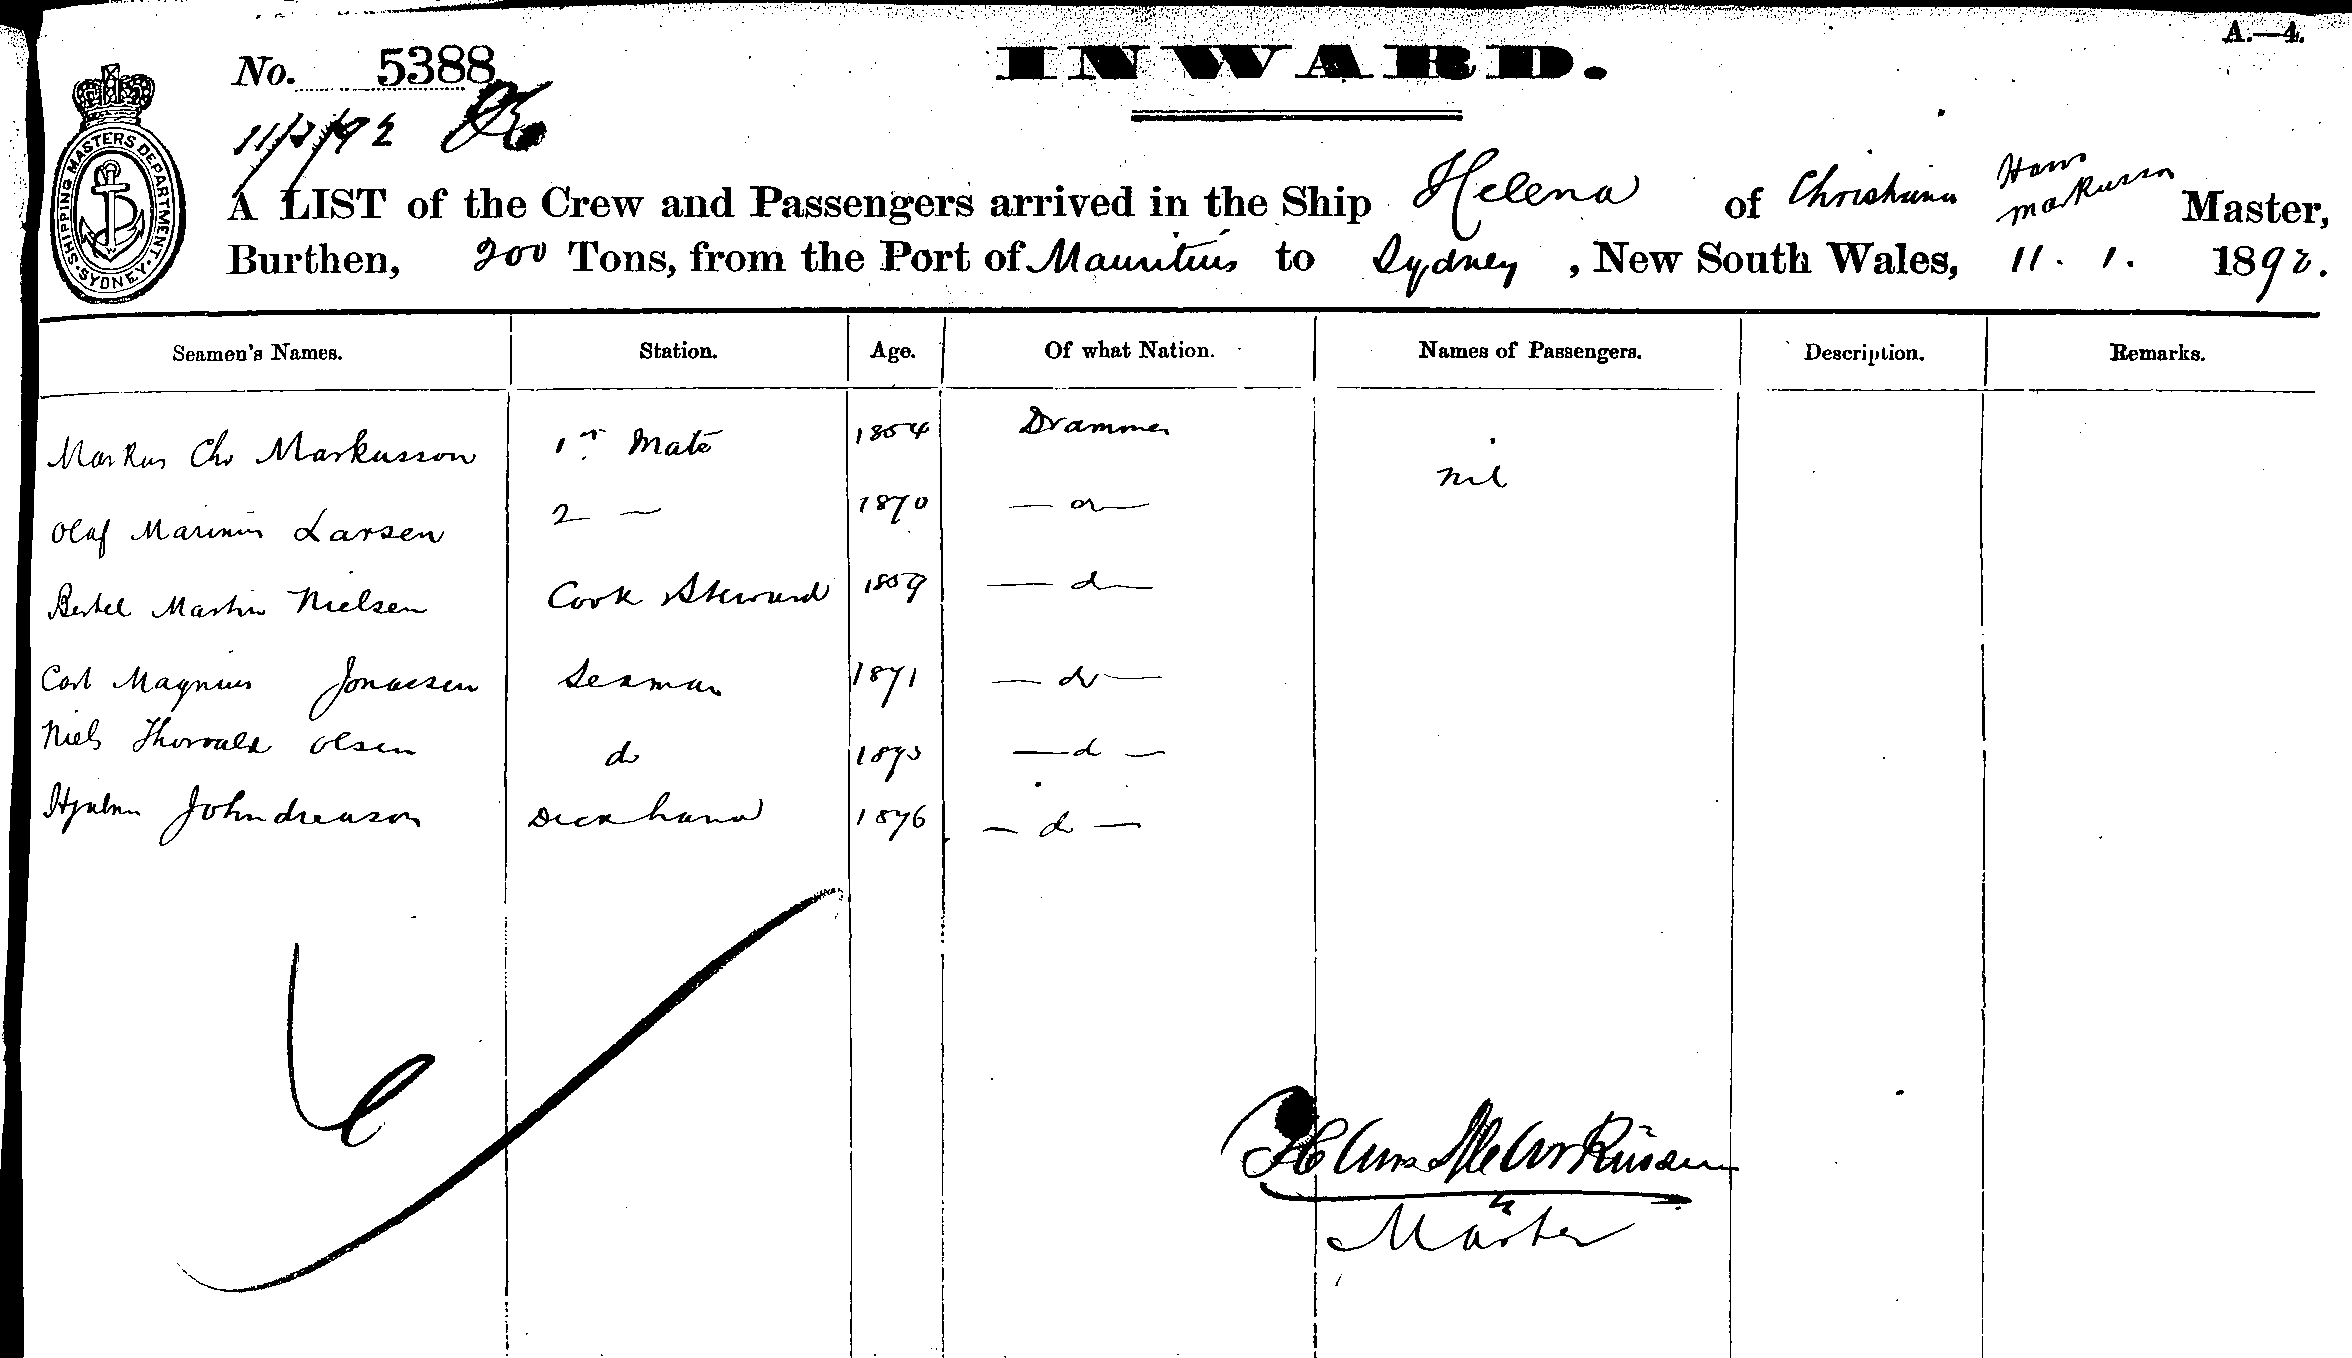 A.—4.
INWARD.
No. 5388
11/1/92
SHIPPING MASTERS DEPARTMENT. SYDNEY.
A LIST of the Crew and Passengers arrived in the Ship Helena of Christiania Hans Markusson Master,
Burthen, 200 Tons, from the Port of Mauritius to Sydney, New South Wales, 11. 1. 1892.
Seamen's Names. Station. Age. Of what Nation. Names of Passengers. Description. Remarks.
Markus Chr Markusson 1st Mate 1854 Drammen
nil
Olaf Marinius Larsen 2 — 1870 — do —
Bertel Martin Nielsen Cook & Steward 1859 — do —
Carl Magnus Jonassen Seaman 1871 — do —
Niels Thorvald Olsen do 1873 — do —
Hjalmar Johndreason Deckhand 1876 — do —
6
Hans Markussen
Master